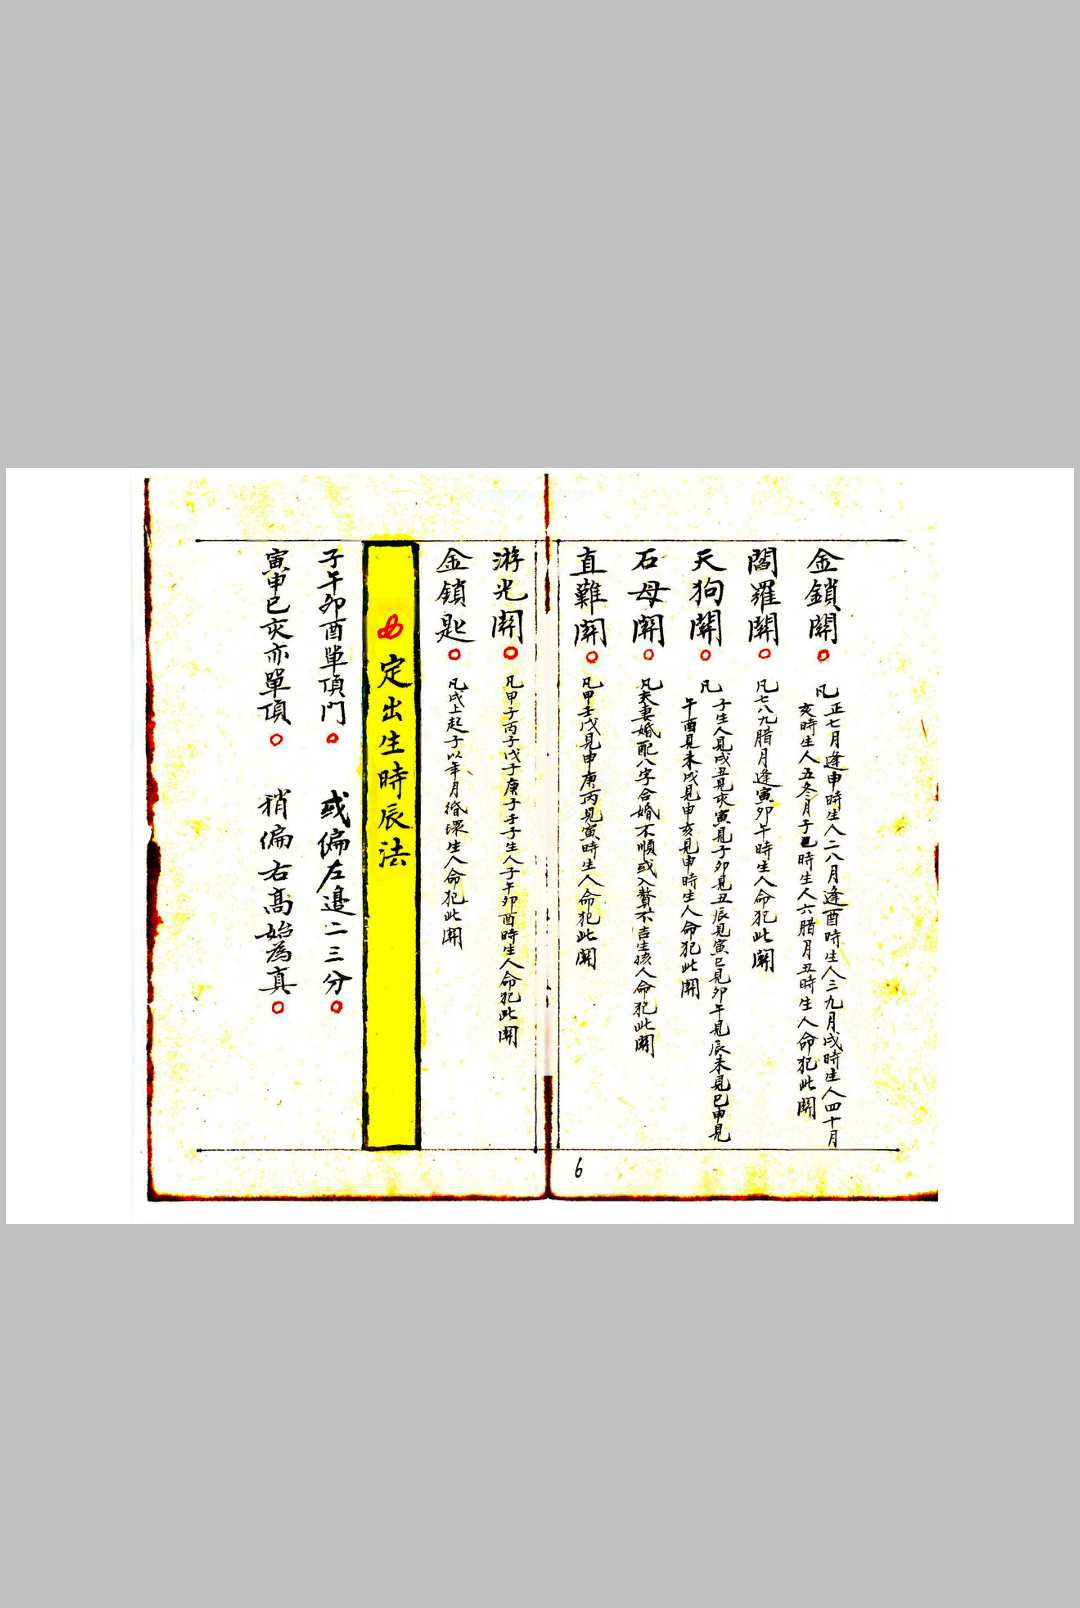 金鎖關
凡正七月逢申時生人二八月逢酉時生人三九月戌時生人四十月
亥時生人五冬月子時生人六腊月丑時生人命犯此關
閻羅關
凡七八九腊月逢寅卯午時生人命犯此關
天狗關
凡子生人見戌丑見亥寅見子卯見丑辰見寅巳見卯午見辰未見巳申見
午酉見未戌見申亥見申時生人命犯此關
石母關
凡夫妻婚配八字合婚不順或入贅不吉生孩人命犯此關
直難關
凡甲壬戊見申庚丙見寅時生人命犯此關
游光關
凡甲子丙子戊子庚子壬子生人子午卯酉時生人命犯此關
金鎖匙
凡戌上起子以年月循環生人命犯此關
定出生時辰法
子午卯酉單頂門 或偏左邊二三分
寅申巳亥亦單頂 稍偏右高始為真
6